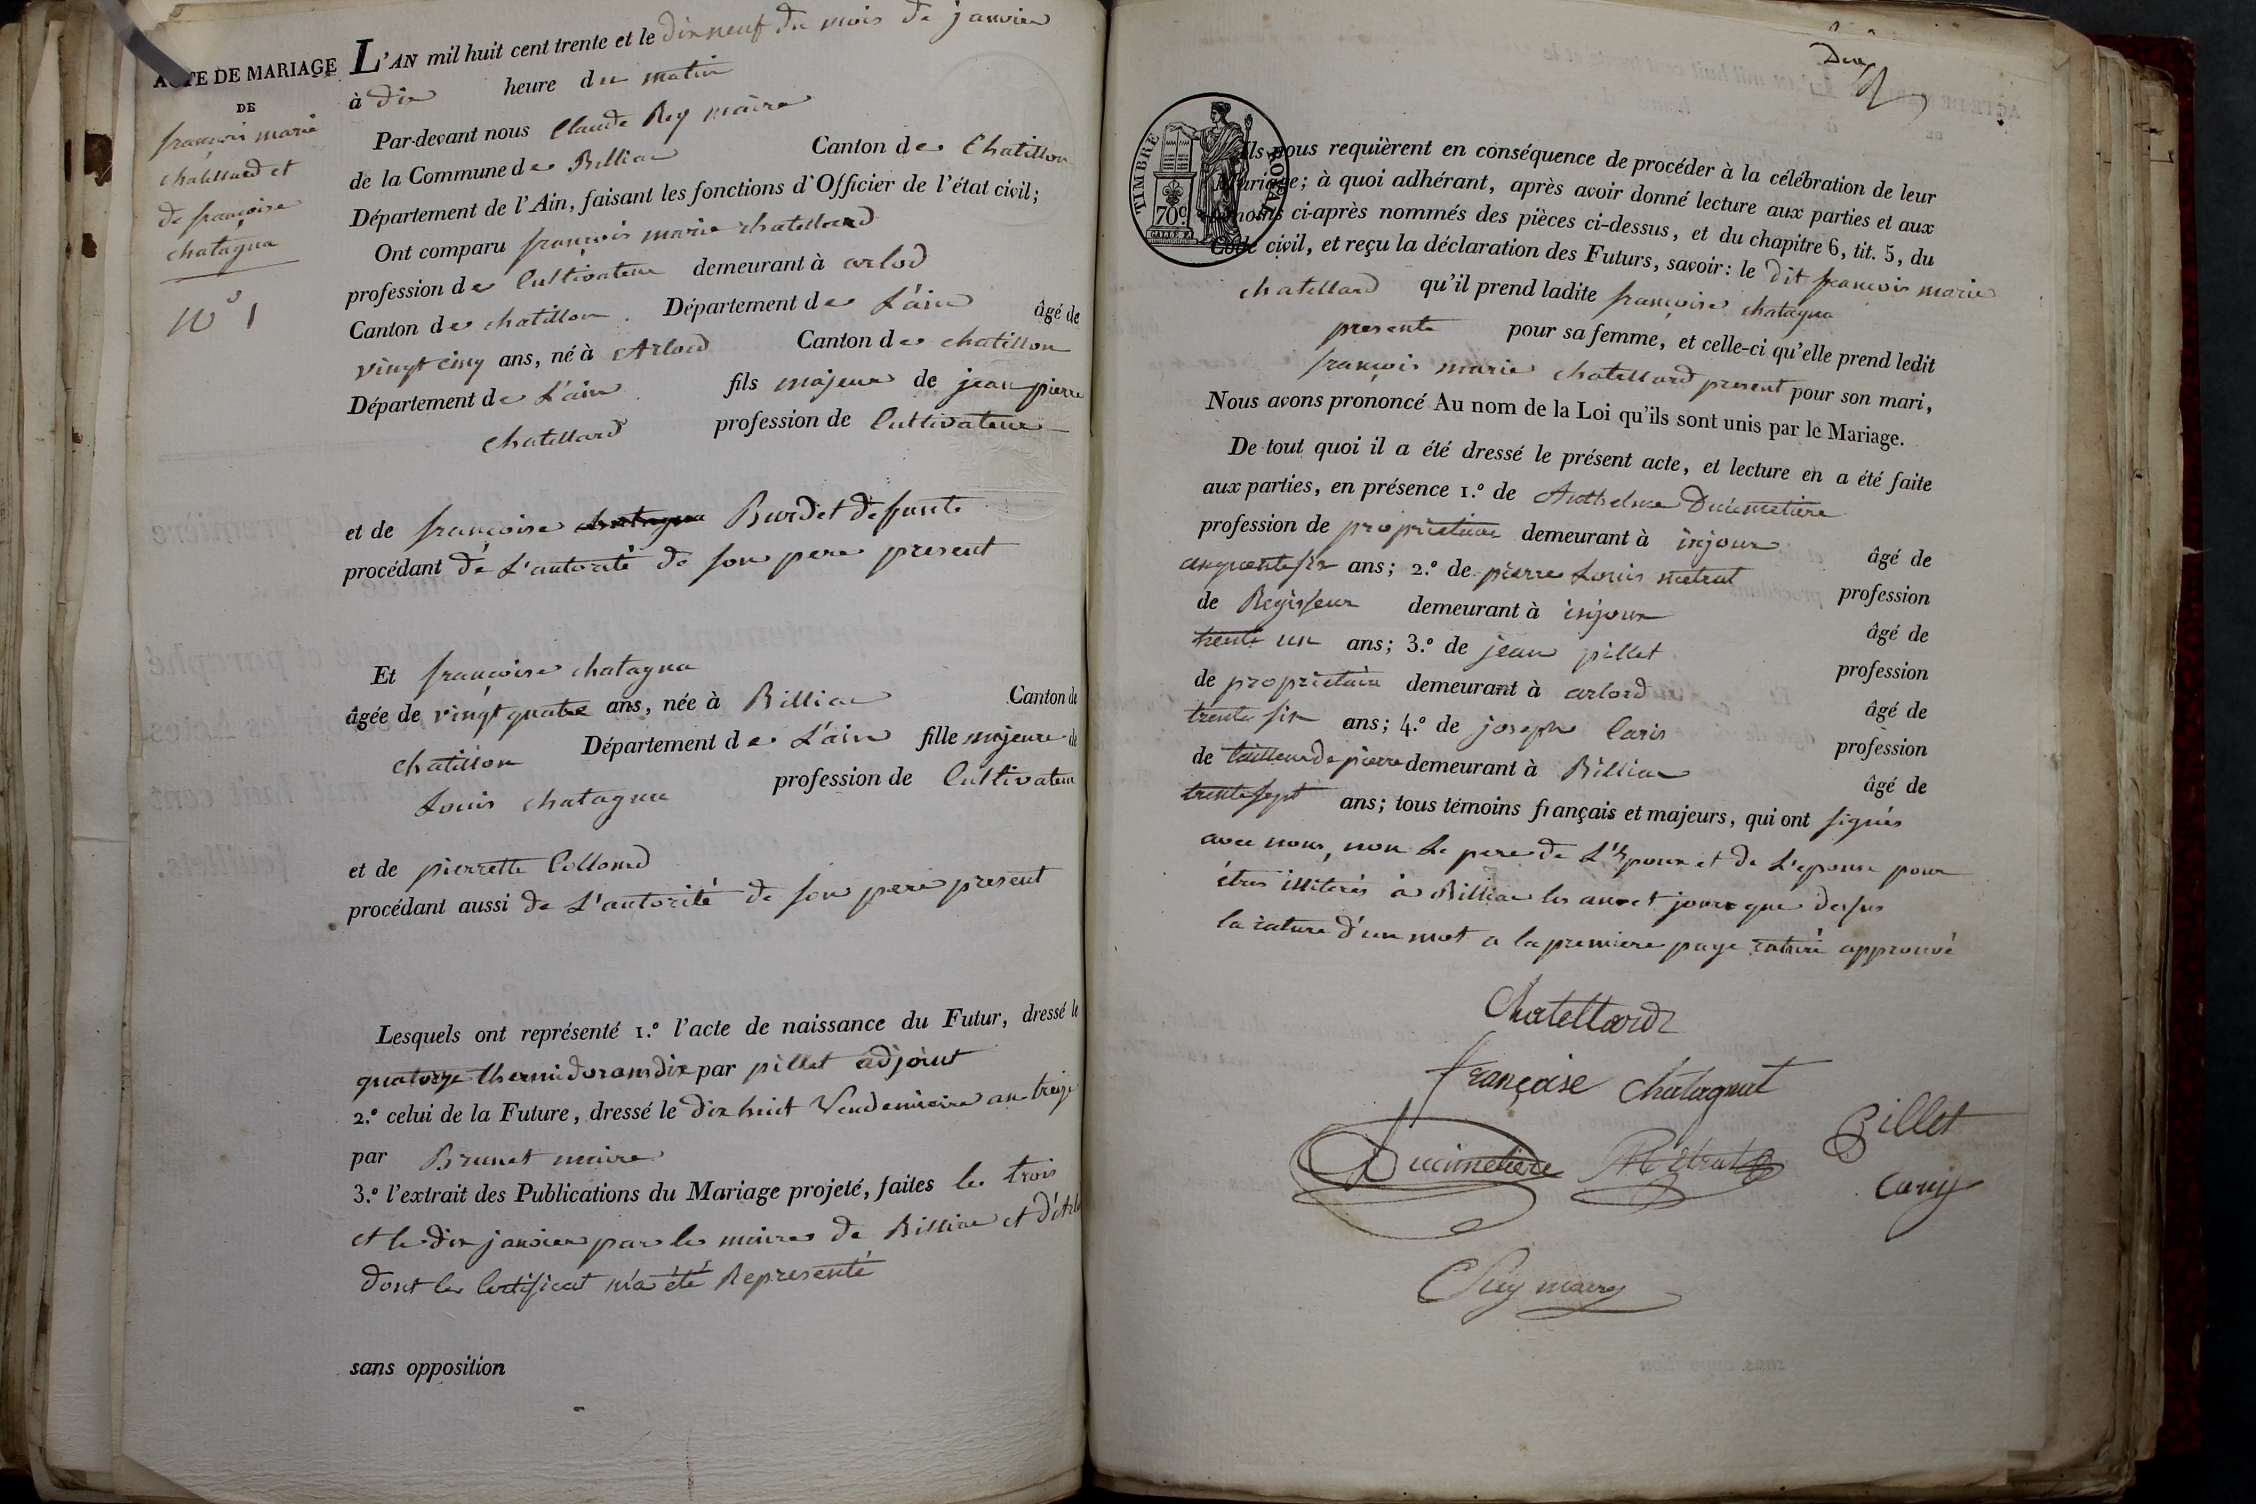 ACTE DE MARIAGE
DE
françois marie
chatellard et
de françoise
chatagna
N° 1
L'AN mil huit cent trente et le dix neuf du mois de janvier
à dix heure du matin
Par-devant nous Claude Rey maire
de la Commune de Billiac Canton de Chatillon
Département de l'Ain, faisant les fonctions d'Officier de l'état civil;
Ont comparu françois marie chatellard
profession de Cultivateur demeurant à arlod
Canton de chatillon Département de L'ain âgé de
vingt cinq ans, né à Arlod Canton de chatillon
Département de L'ain fils majeur de jean pierre
chatellard profession de Cultivateur
et de françoise chatagna Burdet deffunte
procédant de L'autorité de son pere present
Et françoise chatagna
âgée de vingt quatre ans, née à Billiac Canton de
chatillon Département de L'ain fille majeure de
Louis chatagna profession de Cultivateur
et de pierrette Collomd
procédant aussi de L'autorité de son pere present
Lesquels ont représenté 1.° l'acte de naissance du Futur, dressé le
quatorze thermidor an dix par pillet adjoint
2.° celui de la Future, dressé le dix huit Vendemiaire an treize
par Brunet maire
3.° l'extrait des Publications du Mariage projeté, faites le trois
et le dix janvier par les maires de Billiac et d'Arlod
dont le Certificat m'a été Representé
sans opposition
Deux
TIMBRE ROYAL
70c
Ils nous requièrent en conséquence de procéder à la célébration de leur
Mariage; à quoi adhérant, après avoir donné lecture aux parties et aux
témoins ci-après nommés des pièces ci-dessus, et du chapitre 6, tit. 5, du
Code civil, et reçu la déclaration des Futurs, savoir: le dit françois marie
chatellard qu'il prend ladite françoise chatagna
presente pour sa femme, et celle-ci qu'elle prend ledit
françois marie chatellard present pour son mari,
Nous avons prononcé Au nom de la Loi qu'ils sont unis par le Mariage.
De tout quoi il a été dressé le présent acte, et lecture en a été faite
aux parties, en présence 1.° de Anthelme Ducimetiere
profession de proprietaire demeurant à injoux âgé de
cinquante six ans; 2.° de pierre Louis metrat profession
de Regisseur demeurant à injoux âgé de
trente un ans; 3.° de jean pillet profession
de proprietaire demeurant à arlod âgé de
trente six ans; 4.° de joseph Caris profession
de tailleur de pierre demeurant à Billiac âgé de
trente sept ans; tous témoins français et majeurs, qui ont signés
avec nous, non Le pere de L'Epoux et de L'epouse pour
étres illiterés à Billiac les an et jour que dessus
la rature d'un mot a la premiere page raturé approuvé
Chatellard
françoise Chatagnat
Ducimetiere Métrat Pillet
Rey maire